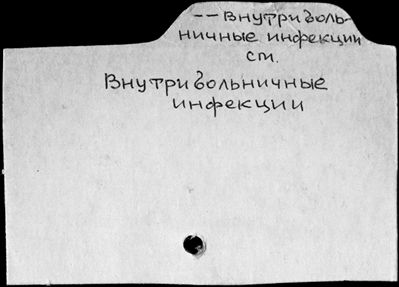 -- Внутриболь-
ничные инфекции
см.
Внутрибольничные
инфекции